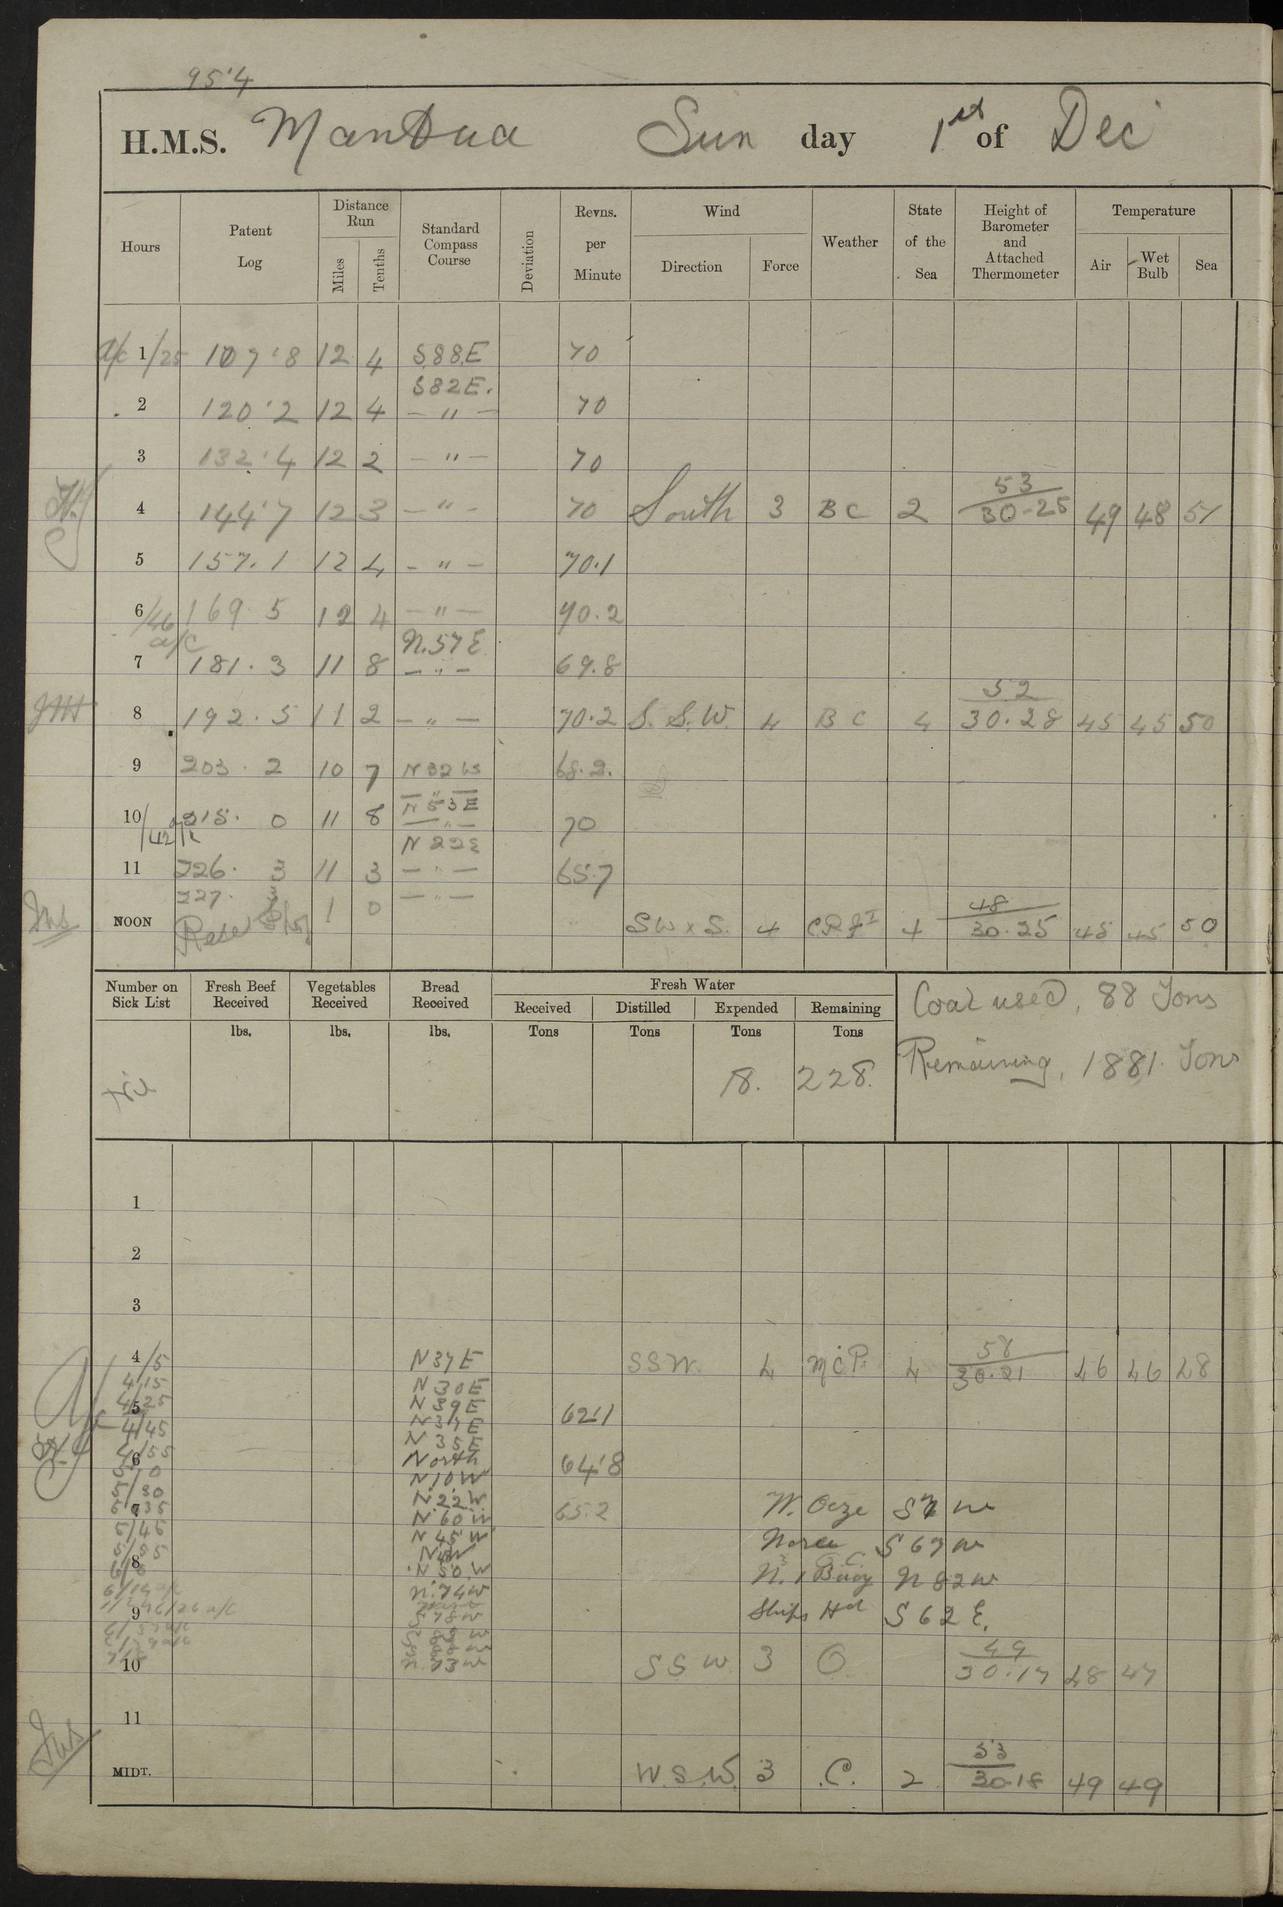 95.4
H.M.S. Mantua Sun day 1st of Dec
Hours Patent Log Distance Run Miles Tenths Standard Compass Course Deviation Revns. per Minute Wind Direction Force Weather State of the Sea Height of Barometer and Attached Thermometer Temperature Air Wet Bulb Sea
a/c 1/25 107.8 12 4 S88E 70
S82E.
2 120.2 12 4 — " — 70
3 132.4 12 2 — " — 70
53
4 144.7 12 3 — " — 70 South 3 BC 2 30.25 49 48 51
5 157.1 12 4 — " — 70.1
6 169.5 12 4 — " — 70.2
/46 a/c N.57E
7 181.3 11 8 — " — 69.8
52
8 192.5 11 2 — " — 70.2 S.S.W. 4 BC 4 30.28 45 45 50
9 203.2 10 7 N32W 68.2.
— " —
N53E
10 215.0 11 8 — " — 70
/42 N22E
11 226.3 11 3 — " — 65.7
227.3 1 0 — " —
48
NOON SW x S. 4 4 30.25 45 45 50
Number on Sick List Fresh Beef Received Vegetables Received Bread Received Fresh Water Received Distilled Expended Remaining
lbs. lbs. lbs. Tons Tons Tons Tons
Nil 18. 228.
Coal used, 88 Tons
Remaining, 1881 Tons
1
2
3
58
4/5 N37E SSW. 4 4 30.21 46 46 48
4/15 N30E
4/25 N39E
5 62.1
4/45 N37E
N35E
4/55 North
6 64.8
5/0 N10W
5/30 N22W
5/35 N60W
7 65.2 W. Oeze S W
5/45 N45W
Nore S67W
5/55
8 N50W N.1 Buoy N82W
N.74W
9 S78W Ships Hd S62E.
49
10 N.73W SSW 3 O. 30.17 48 47
11
53
MIDT. W.S.W. 3 C. 2 30.18 49 49